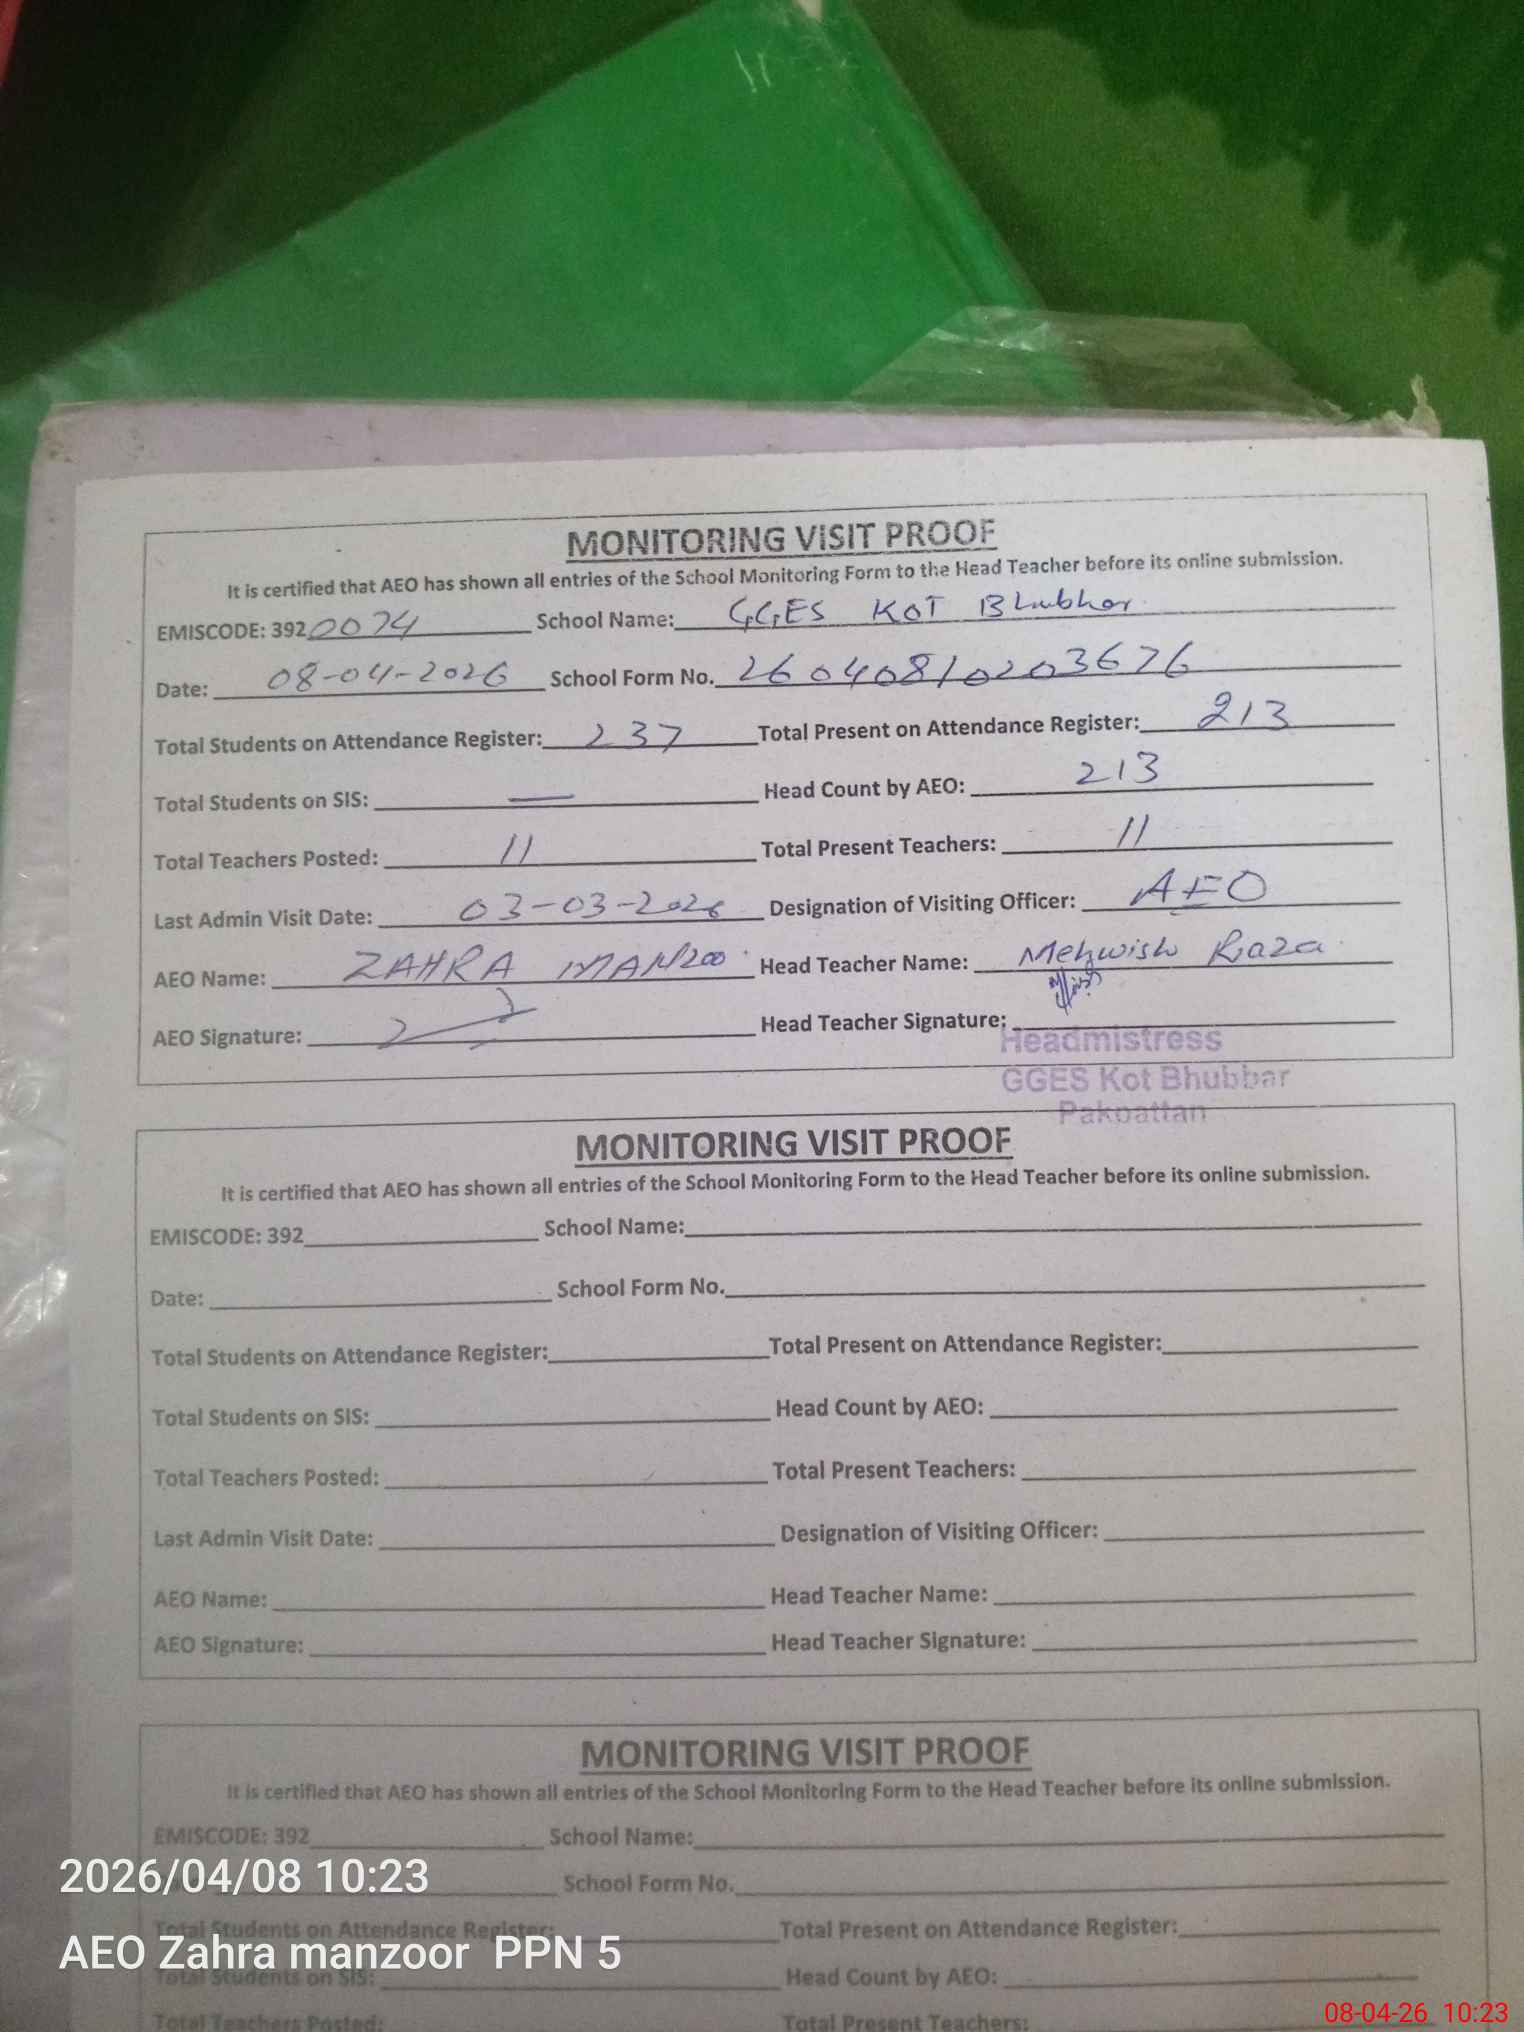 MONITORING VISIT PROOF
It is certified that AEO has shown all entries of the School Monitoring Form to the Head Teacher before its online submission.
EMISCODE: 3920074 School Name: GGES KOT Bhubhar
Date: 08-04-2026 School Form No. 26040810203676
Total Students on Attendance Register: 237 Total Present on Attendance Register: 213
Total Students on SIS: — Head Count by AEO: 213
Total Teachers Posted: 11 Total Present Teachers: 11
Last Admin Visit Date: 03-03-2026 Designation of Visiting Officer: AEO
AEO Name: ZAHRA MANZOO Head Teacher Name: Mehwish Raza
AEO Signature: Head Teacher Signature:
Headmistress
GGES Kot Bhubbar
Pakpattan
MONITORING VISIT PROOF
It is certified that AEO has shown all entries of the School Monitoring Form to the Head Teacher before its online submission.
EMISCODE: 392 School Name:
Date: School Form No.
Total Students on Attendance Register: Total Present on Attendance Register:
Total Students on SIS: Head Count by AEO:
Total Teachers Posted: Total Present Teachers:
Last Admin Visit Date: Designation of Visiting Officer:
AEO Name: Head Teacher Name:
AEO Signature: Head Teacher Signature:
MONITORING VISIT PROOF
It is certified that AEO has shown all entries of the School Monitoring Form to the Head Teacher before its online submission.
EMISCODE: 392 School Name:
2026/04/08 10:23
School Form No.
Total Students on Attendance Register: Total Present on Attendance Register:
AEO Zahra manzoor PPN 5
Total Students on SIS: Head Count by AEO:
Total Teachers Posted: Total Present Teachers:
08-04-26 10:23